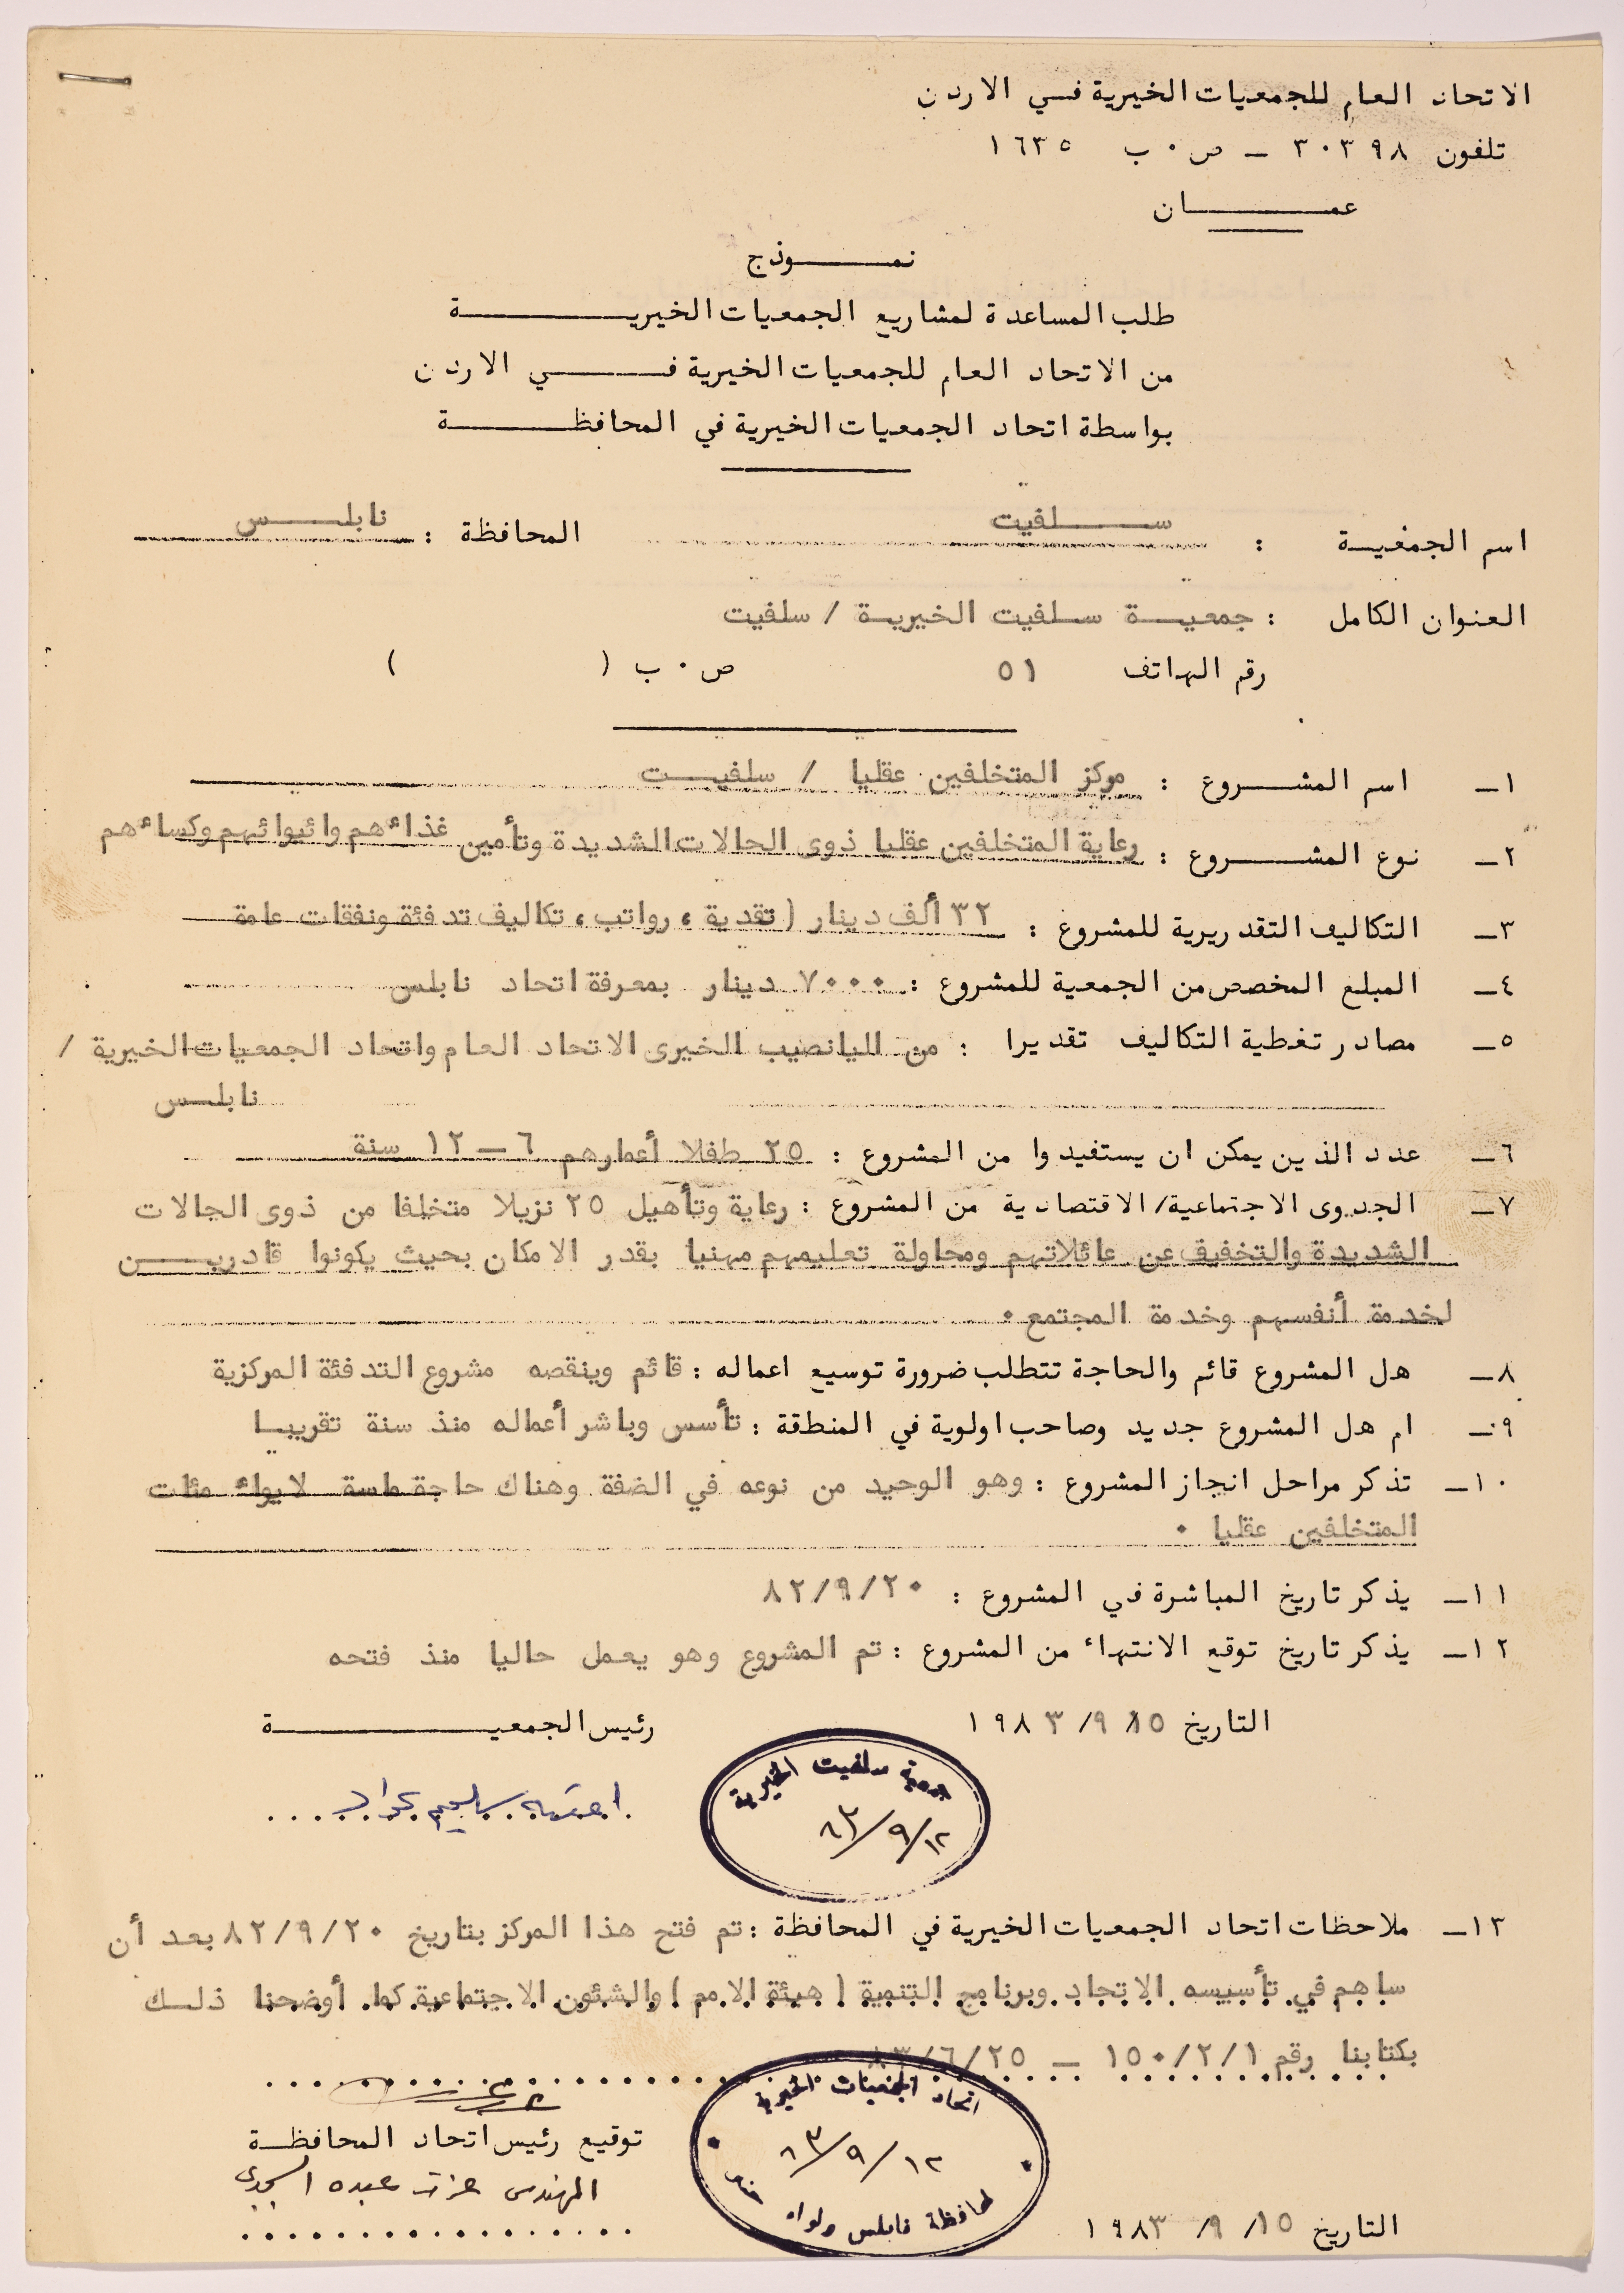 الاتحاد العام للجمعيات الخيرية في الاردن
تلفون ٣٠٣٩٨ – ص.ب ١٦٣٥
عمــــان
نمــــوذج
طلب المساعدة لمشاريع الجمعيات الخيريــــة
من الاتحاد العام للجمعيات الخيرية فــــي الاردن
بواسطة اتحاد الجمعيات الخيرية في المحافظــــة
اسم الجمعية : ســــلفيت المحافظة : نابلــــس
العنوان الكامل : جمعيــة سـلفيت الخيريـة / سلفيت
رقم الهاتف ٥١ ص.ب ( )
١– اسم المشــــروع : مركز المتخلفين عقليا / سلفيــت
٢– نوع المشــــروع : رعاية المتخلفين عقليا ذوى الحالات الشديدة وتأمين غذاءهم وائيوائهم وكساءهم
٣– التكاليف التقديرية للمشروع : ٣٢ ألف دينار ( تقدية ، رواتب ، تكاليف تدفئة ونفقات عامة
٤– المبلغ المخصص من الجمعية للمشروع : ٧٠٠٠ دينار بمعرفة اتحاد نابلس
٥– مصادر تغطية التكاليف تقديرا : من اليانصيب الخيرى الاتحاد العام واتحاد الجمعيات الخيرية /
نابلـس
٦– عدد الذين يمكن ان يستفيدوا من المشروع : ٢٥ طفلا أعمارهم ٦ – ١٢ سنة
٧– الجدوى الاجتماعية/ الاقتصادية من المشروع : رعاية وتأهيل ٢٥ نزيلا متخلفا من ذوى الحالات
الشديدة والتخفيف عن عائلاتهم ومحاولة تعليمهم مهنيا بقدر الامكان بحيث يكونوا قادريــــن
لخدمة أنفسهم وخدمة المجتمع .
٨– هل المشروع قائم والحاجة تتطلب ضرورة توسيع اعماله : قائم وينقصه مشروع التدفئة المركزية
٩– ام هل المشروع جديد وصاحب اولوية في المنطقة : تأسس وباشر أعماله منذ سنة تقريبـا
١٠– تذكر مراحل انجاز المشروع : وهو الوحيد من نوعه في الضفة وهناك حاجة ماسة لايواء مئات
المتخلفين عقليا .
١١– يذكر تاريخ المباشرة في المشروع : ٨٢/٩/٢٠
١٢– يذكر تاريخ توقع الانتهاء من المشروع : تم المشروع وهو يعمل حاليا منذ فتحه
التاريخ ١٥/ ٩/ ١٩٨٣ رئيس الجمعيــــة
جمعية سلفيت الخيرية
٨٣/٩/١٢
١٣– ملاحظات اتحاد الجمعيات الخيرية في المحافظة : تم فتح هذا المركز بتاريخ ٨٢/٩/٢٠ بعد أن
ساهم في تأسيسه الاتحاد وبرنامج التنمية ( هيئة الامم ) والشئون الاجتماعية كما أوضحنا ذلـك
بكتابنا رقم ١٥٠/٢/١ – ٨٣/٦/٢٥
اتحاد الجمعيات الخيرية
٨٣/٩/١٢
لمحافظة نابلس ولواء جنين
توقيع رئيس اتحاد المحافظــة
المهندس عزت عبده
التاريخ ١٥/ ٩/ ١٩٨٣